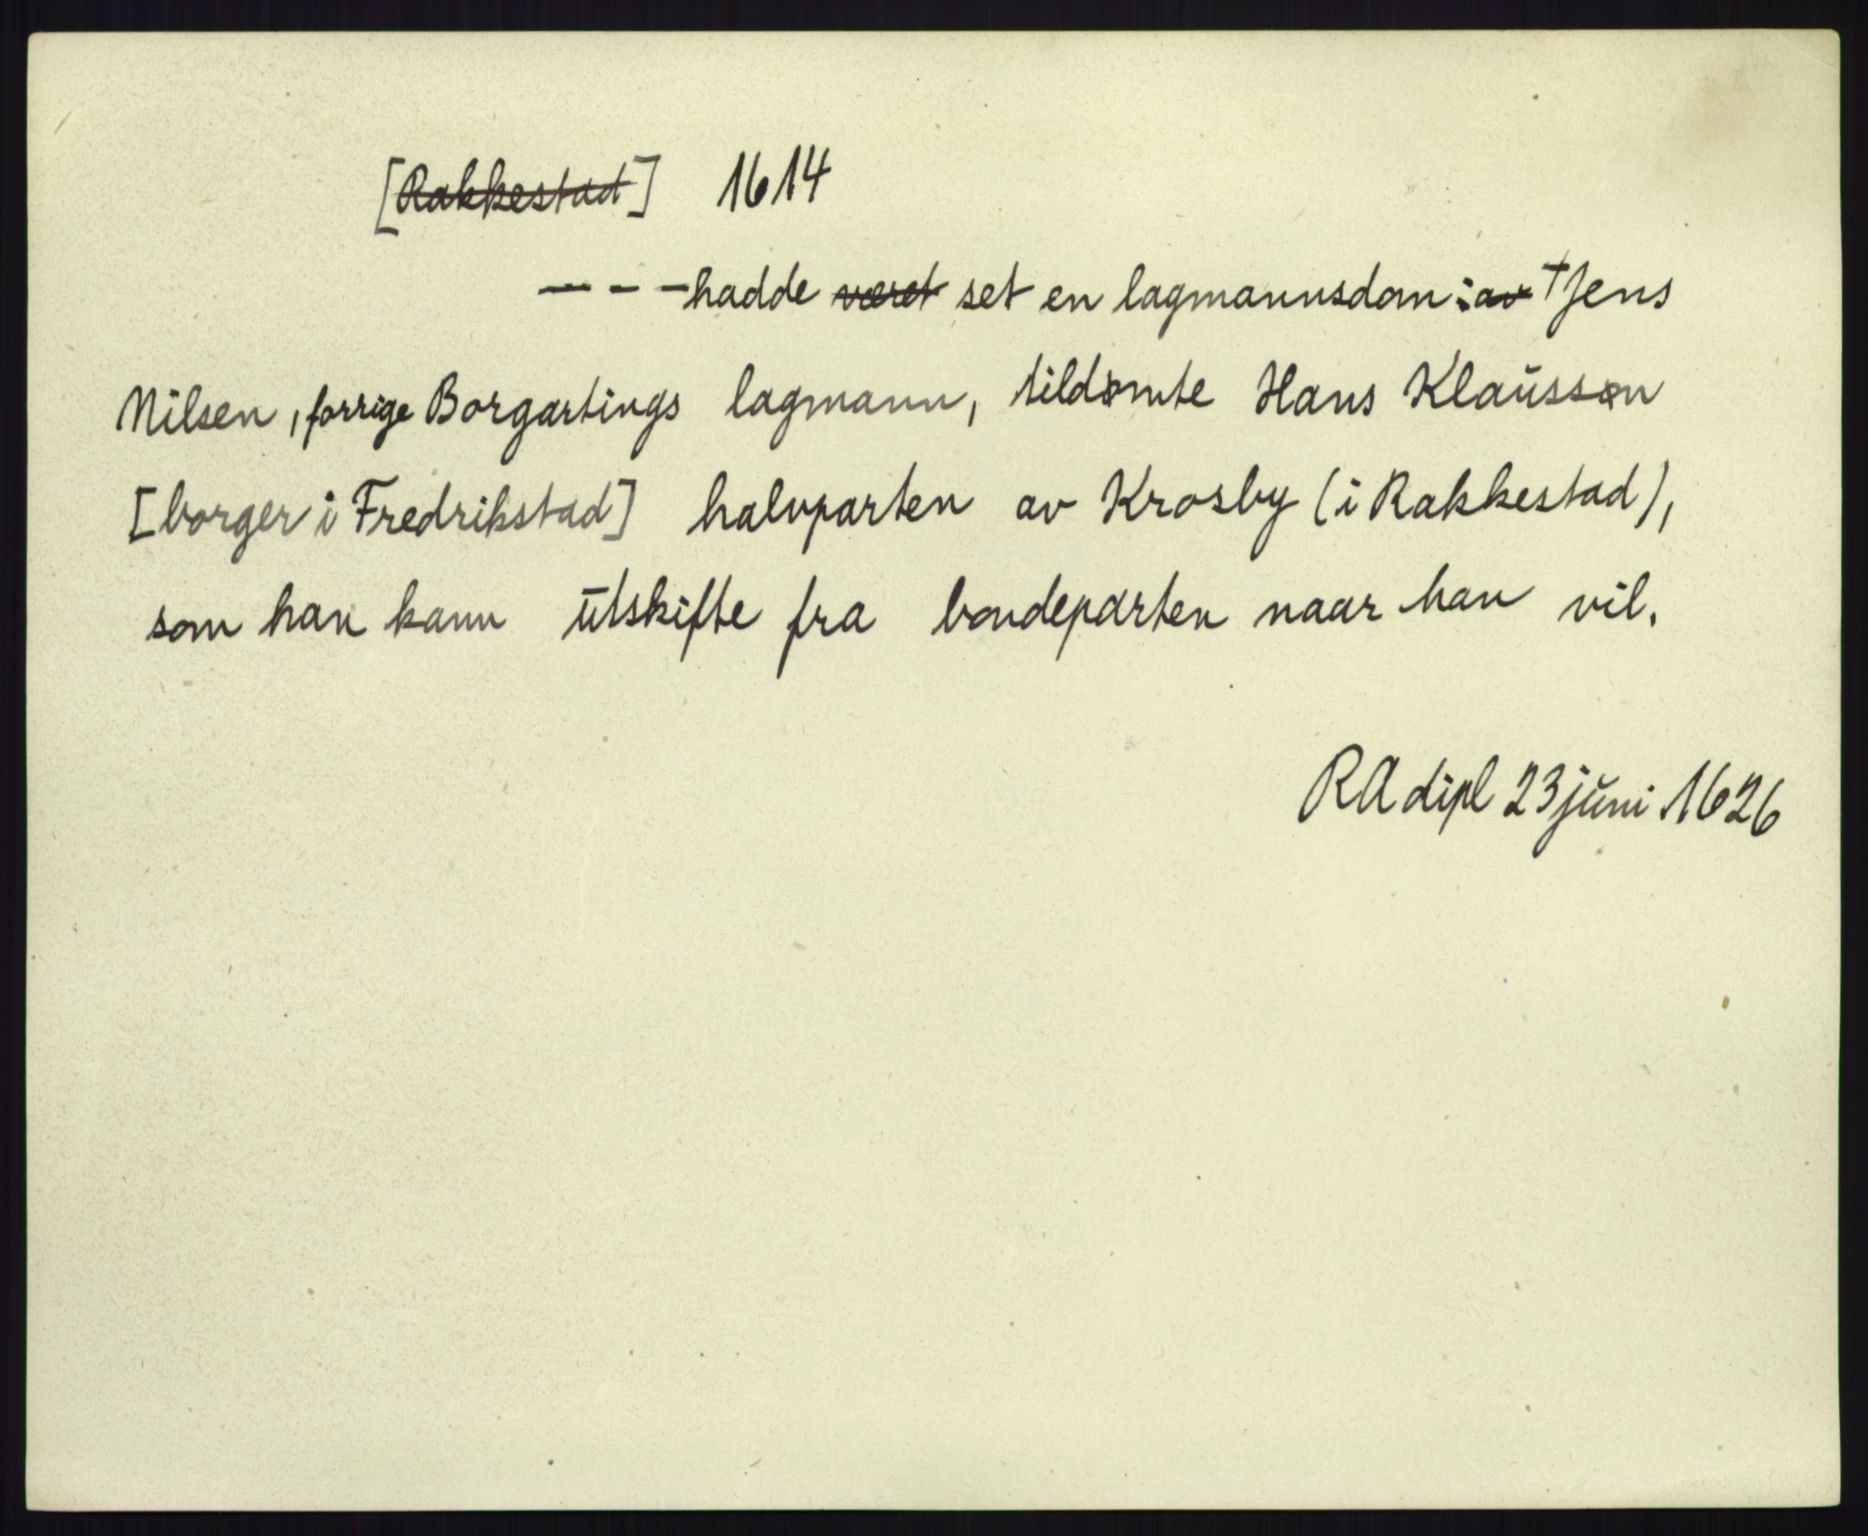 [~~Rakkestad~~] 1614
- - - hadde ~~været~~ set en lagmannsdom: ~~av~~ †Jens
Nilsen, forrige Borgartings lagmann, tildømte Hans Klaussøn
[borger i Fredrikstad] halvparten av Krosby (i Rakkestad),
som han kann utskifte fra bondeparten naar han vil.
RA dipl 23 juni 1626